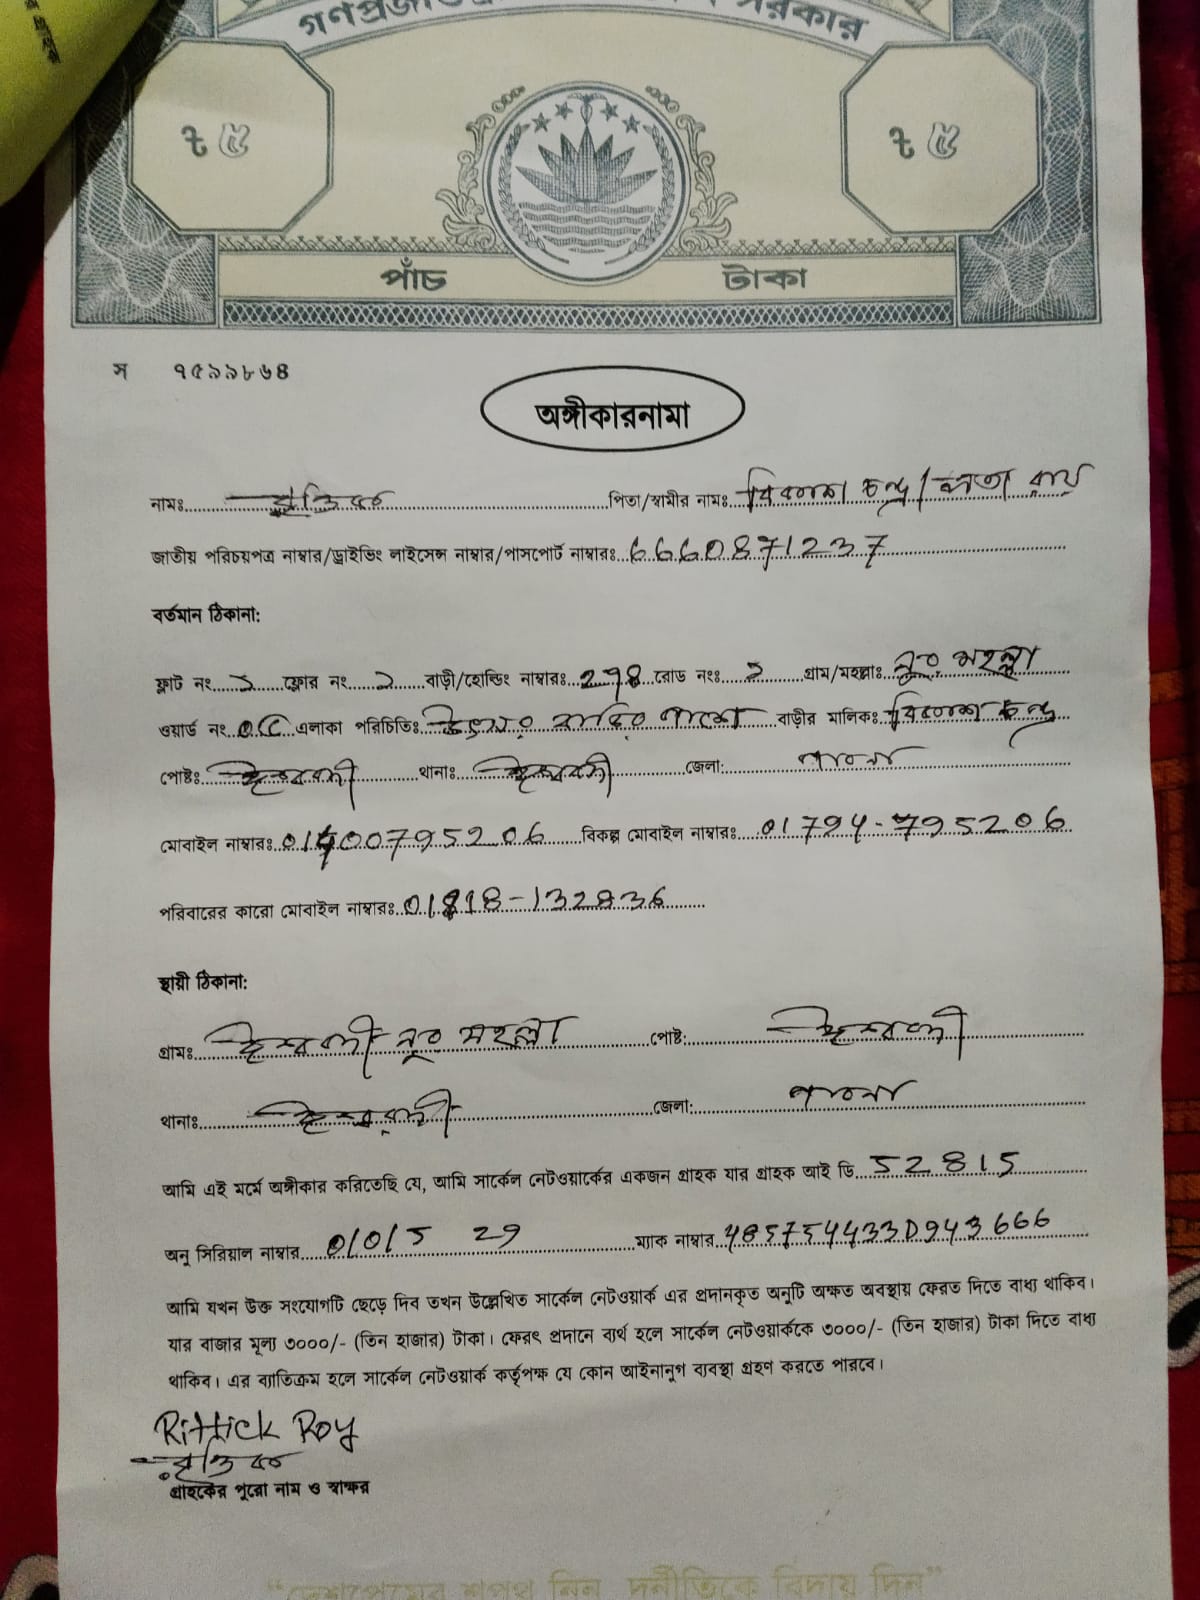 ৳ ৫ ৳ ৫
পাঁচ টাকা
স ৭৫৯৯৮৬৪
অঙ্গীকারনামা
নামঃ ঋত্বিক পিতা/স্বামীর নামঃ বিকাশ চন্দ্র / লতা রায়
জাতীয় পরিচয়পত্র নাম্বার/ড্রাইভিং লাইসেন্স নাম্বার/পাসপোর্ট নাম্বারঃ 6660871237
বর্তমান ঠিকানা:
ফ্লাট নং ফ্লোর নং বাড়ী/হোল্ডিং নাম্বারঃ রোড নংঃ ২ গ্রাম/মহল্লাঃ নূর মহল্লা
ওয়ার্ড নং এলাকা পরিচিতিঃ বাড়ীর মালিকঃ বিকাশ চন্দ্র
পোষ্টঃ ঈশ্বরদী থানাঃ ঈশ্বরদী জেলা: পাবনা
মোবাইল নাম্বারঃ বিকল্প মোবাইল নাম্বারঃ 01794-795206
পরিবারের কারো মোবাইল নাম্বারঃ
স্থায়ী ঠিকানা:
গ্রামঃ ঈশ্বরদী নূর মহল্লা পোষ্ট: ঈশ্বরদী
থানাঃ ঈশ্বরদী জেলা: পাবনা
আমি এই মর্মে অঙ্গীকার করিতেছি যে, আমি সার্কেল নেটওয়ার্কের একজন গ্রাহক যার গ্রাহক আই ডি 52815
অনু সিরিয়াল নাম্বার ম্যাক নাম্বার
আমি যখন উক্ত সংযোগটি ছেড়ে দিব তখন উল্লেখিত সার্কেল নেটওয়ার্ক এর প্রদানকৃত অনুটি অক্ষত অবস্থায় ফেরত দিতে বাধ্য থাকিব।
যার বাজার মূল্য ৩০০০/- (তিন হাজার) টাকা। ফেরৎ প্রদানে ব্যর্থ হলে সার্কেল নেটওয়ার্ককে ৩০০০/- (তিন হাজার) টাকা দিতে বাধ্য
থাকিব। এর ব্যাতিক্রম হলে সার্কেল নেটওয়ার্ক কর্তৃপক্ষ যে কোন আইনানুগ ব্যবস্থা গ্রহণ করতে পারবে।
Rittick Roy
ঋত্বিক
গ্রাহকের পুরো নাম ও স্বাক্ষর
"দেশপ্রেমের শপথ নিন, দুর্নীতিকে বিদায় দিন"